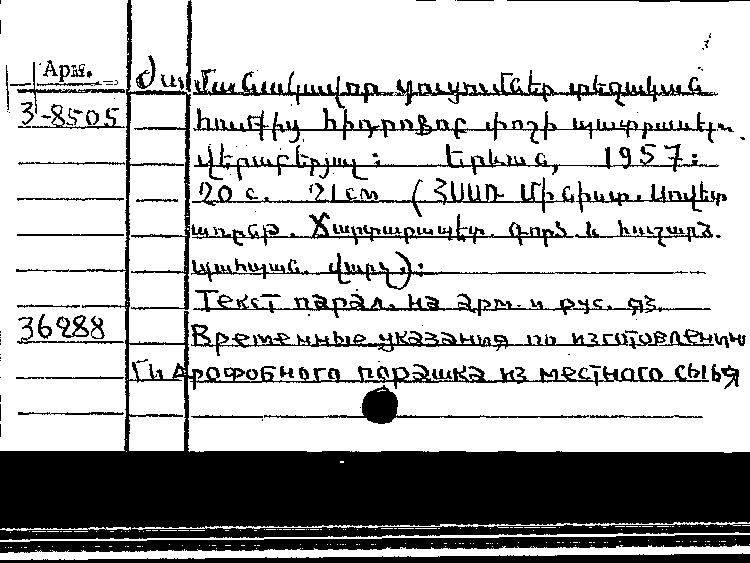 Арм.
Ժամանակավոր ցուցումներ տեղական
3-8505 հումքից հիդրոֆոբ փոշի պատրաստելու
վերաբերյալ: Երևան, 1957:
20 с. 21см (ՀՍՍՌ Մինիստ. Սովետ
առընթ. Ճարտարապետ. գործ. և հուշարձ.
պահպան. վարչ.):
Текст парал. на арм. и рус. яз.
36288 Временные указания по изготовлению
гидрофобного порашка из местного сырья